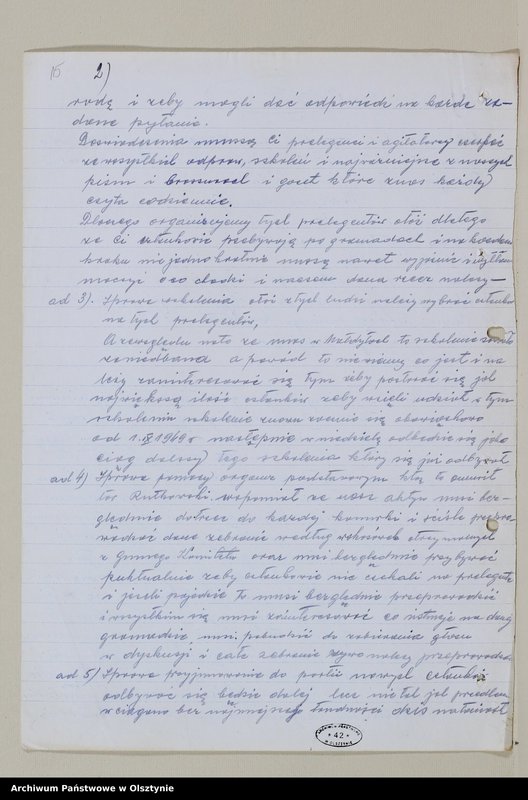 15 2)
rodę i żeby mogli dać odpowiedź na każde za-
dane pytanie.
Doświadczenia muszą ci prelegenci i agitatorzy czerpać
ze wszystkich odpraw, szkoleń i najważniejsze z naszych
pism i broszurach i gazet które z nas każdy
czyta codziennie.
Dlaczego organizujemy tych prelegentów otóż dlatego
że ci członkowie przebywają po gromadach i na każdem
kroku niejednokrotnie muszą nawet wyjaśnić i wytłu-
maczyć o co chodzi i naczem dana rzecz polega
ad 3). Sprawa szkolenia otóż z tych ludzi należy wybrać członków
na tych prelegentów,
A ze względu na to że u nas w Małdytach to szkolenie zostało
zaniedbane a powód to nie wiemy co jest i na-
leży zainteresować się tym żeby postarać się jak
największą ilość członków żeby wzięli udział w tym
szkoleniu szkolenie znowu zacznie się obowiązkowo
od 1.IX 1949 r następnie w niedzielę odbędzie się jako
ciąg dalszy tego szkolenia który się już odbywał
ad 4) Sprawa pomocy organ podstawowym kołą to omówił
tów. Rutkowski. wspomniał że nasz aktyw musi bez-
ględnie dotrzeć do każdej komórki i ściśle przepro-
wadzać dane zebranie według wskazówek otrzymanych
z Gminnego Komitetu oraz musi bezględnie przybywać
punktualnie żeby członkowie nie czekali na prelegenta
i jeżeli pojedzie to musi bezględnie przeprowadzić
i wszystkim się musi zainteresować co istnieje na danej
gromadzie musi pobudzić do zabierania głosu
w dyskusji i całe zebranie żywo należy przeprowadzać
ad 5) Sprawa przyjmowania do partii nowych członków
odbywać się będzie dalej lecz nie tak jak przedtem
wciągano bez najmniejszej trudności dziś natomiast
42
W OLSZTYNIE
Archiwum Państwowe w Olsztynie